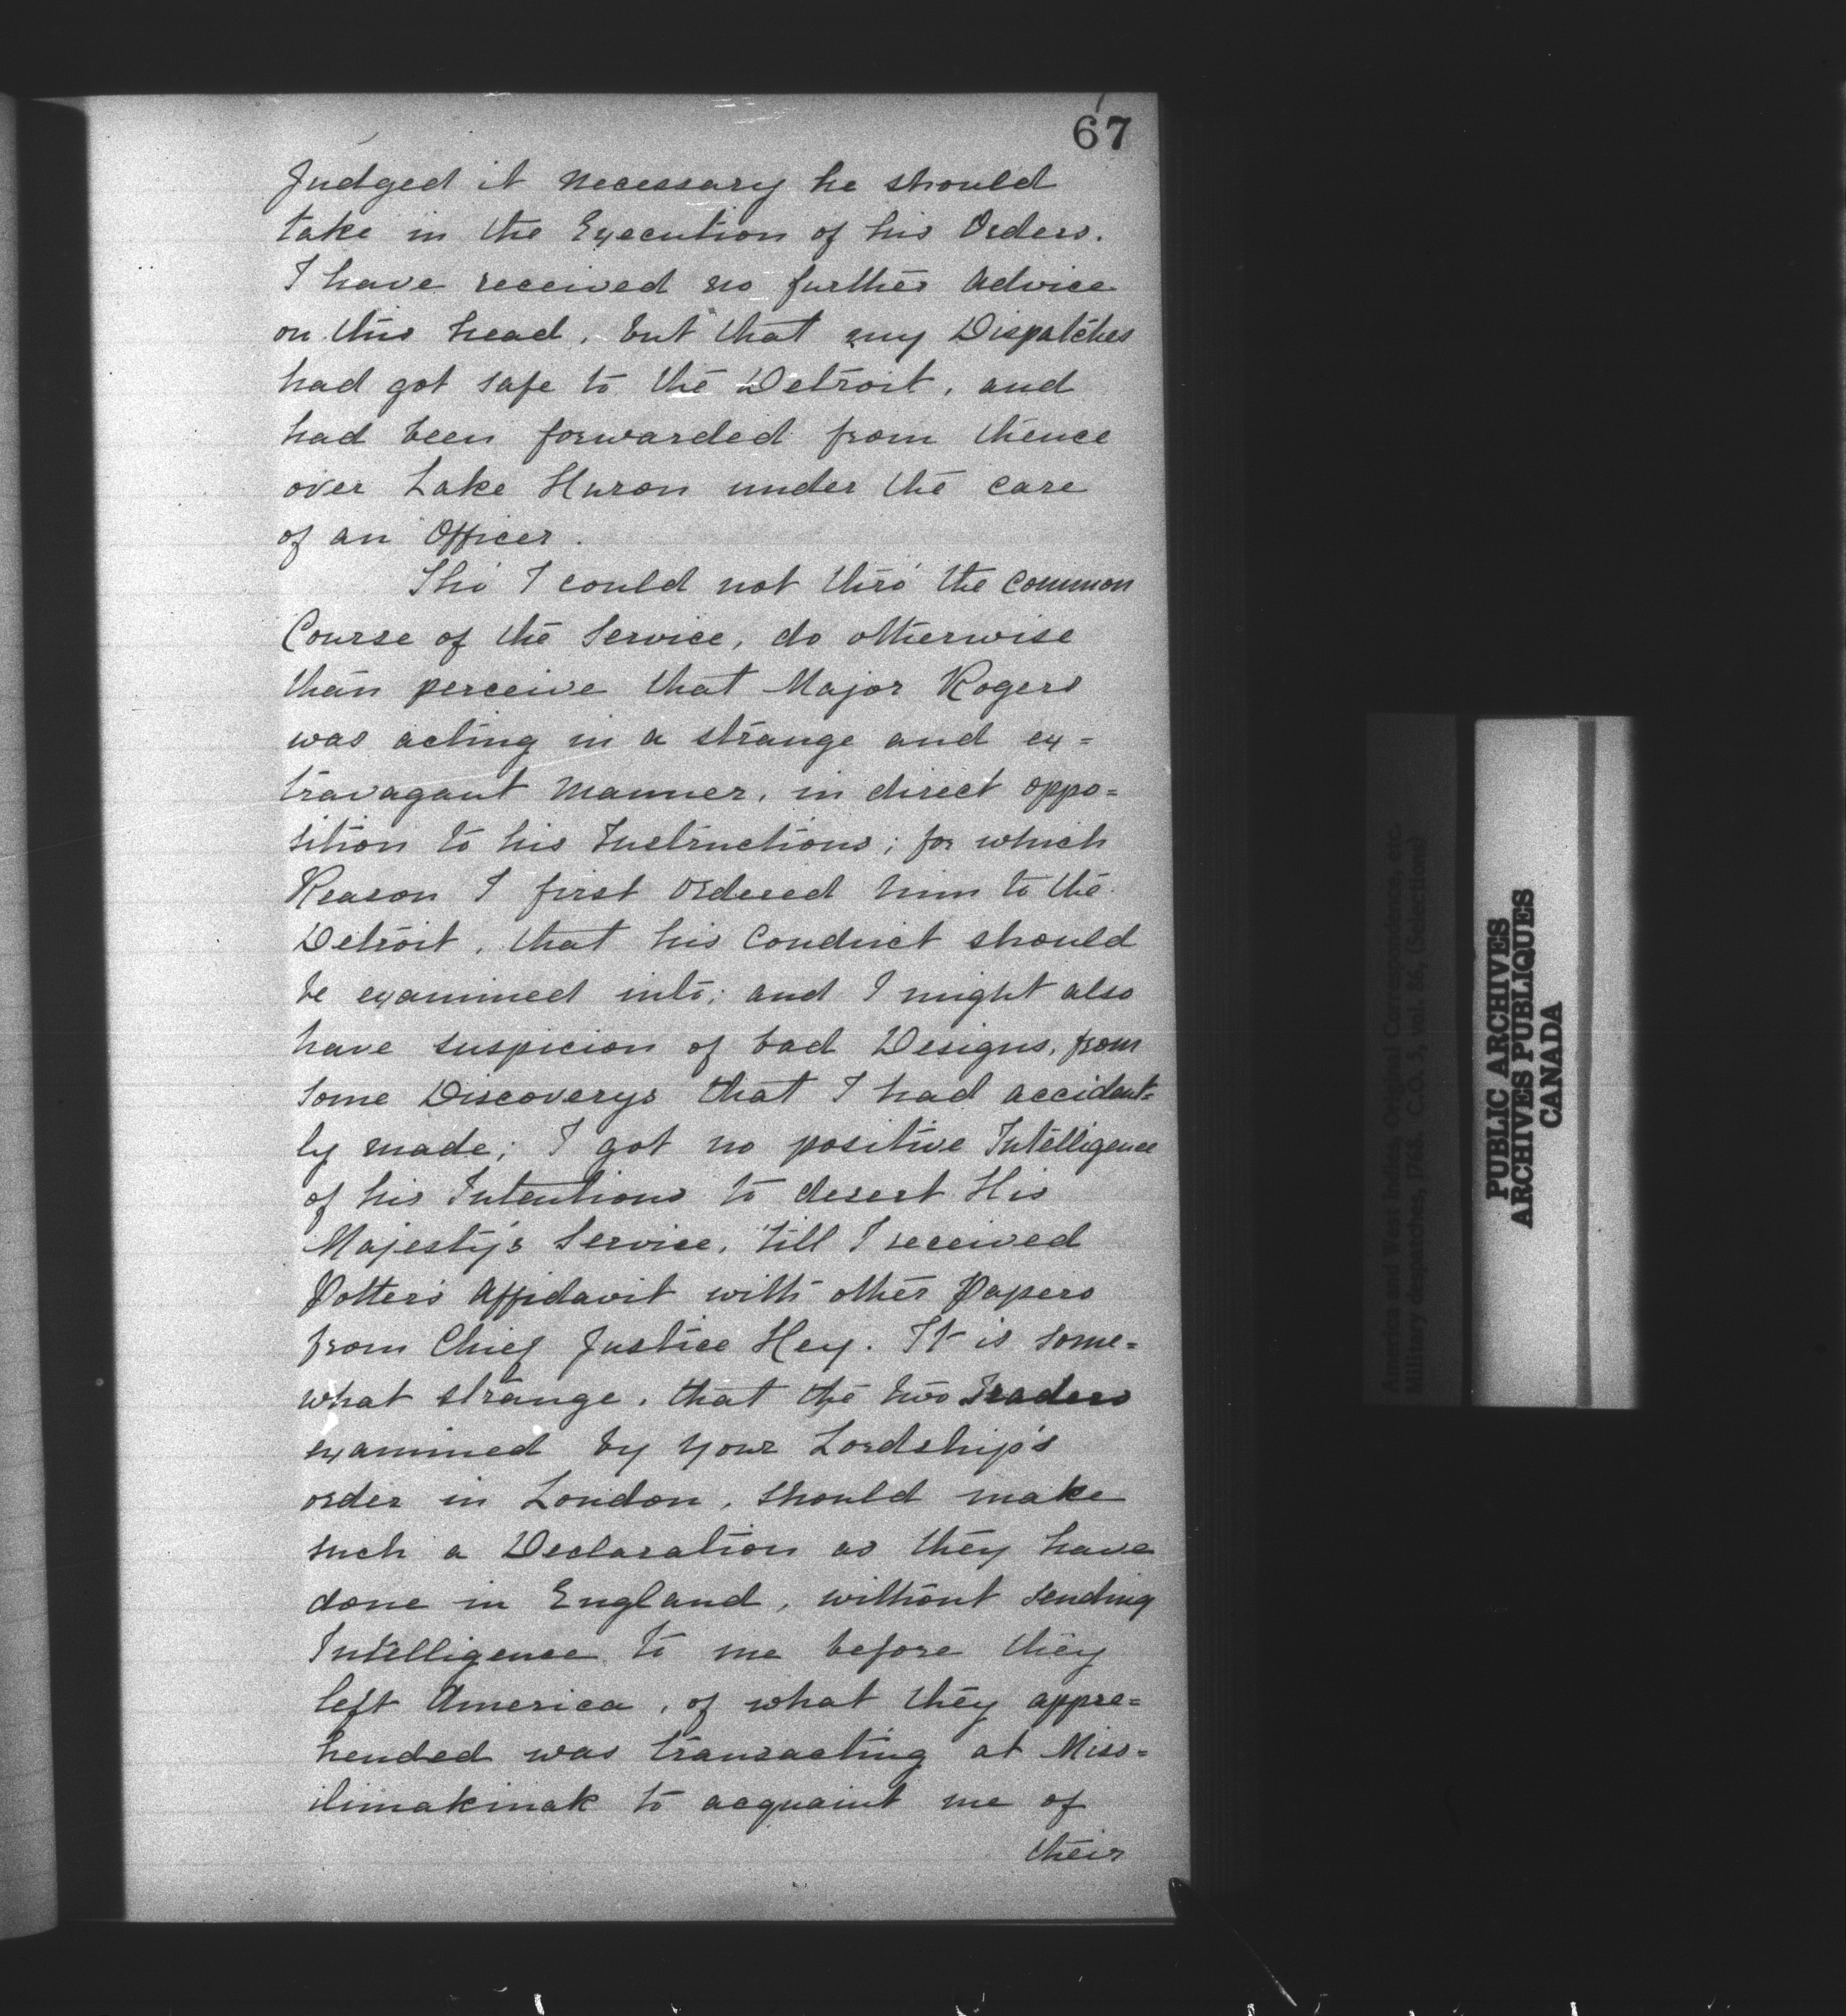 67
Judged it necessary he should
take in the Execution of his Orders.
I have received no further Advice
on this head, but that my Dispatches
had got safe to the Detroit, and
had been forwarded from thence
over Lake Huron under the care
of an Officer.
Tho' I could not thro' the Common
Course of the Service, do otherwise
than perceive that Major Rogers
was acting in a strange and ex=
travagant Manner, in direct oppo=
sition to his Instructions; for which
Reason I first ordered him to the
Detroit, that his Conduct should
be examined into; and I might also
have suspicion of bad Designs, from
some Discoverys that I had accident=
ly made; I got no positive Intelligence
of his Intentions to desert His
Majesty's Service, 'till I received
Potter's Affidavit with other Papers
from Chief Justice Hey. It is some=
what strange, that the two Traders
examined by your Lordship's
order in London, should make
such a Declaration as they have
done in England, without sending
Intelligence to me before they
left America, of what they appre=
hended was transacting at Miss=
ilimakinak to acquaint me of
their
PUBLIC ARCHIVES
ARCHIVES PUBLIQUES
CANADA
America and West Indies, Original Correspondence, etc.
Military despatches, 1768. C.O. 5, vol. 86, (Selections)